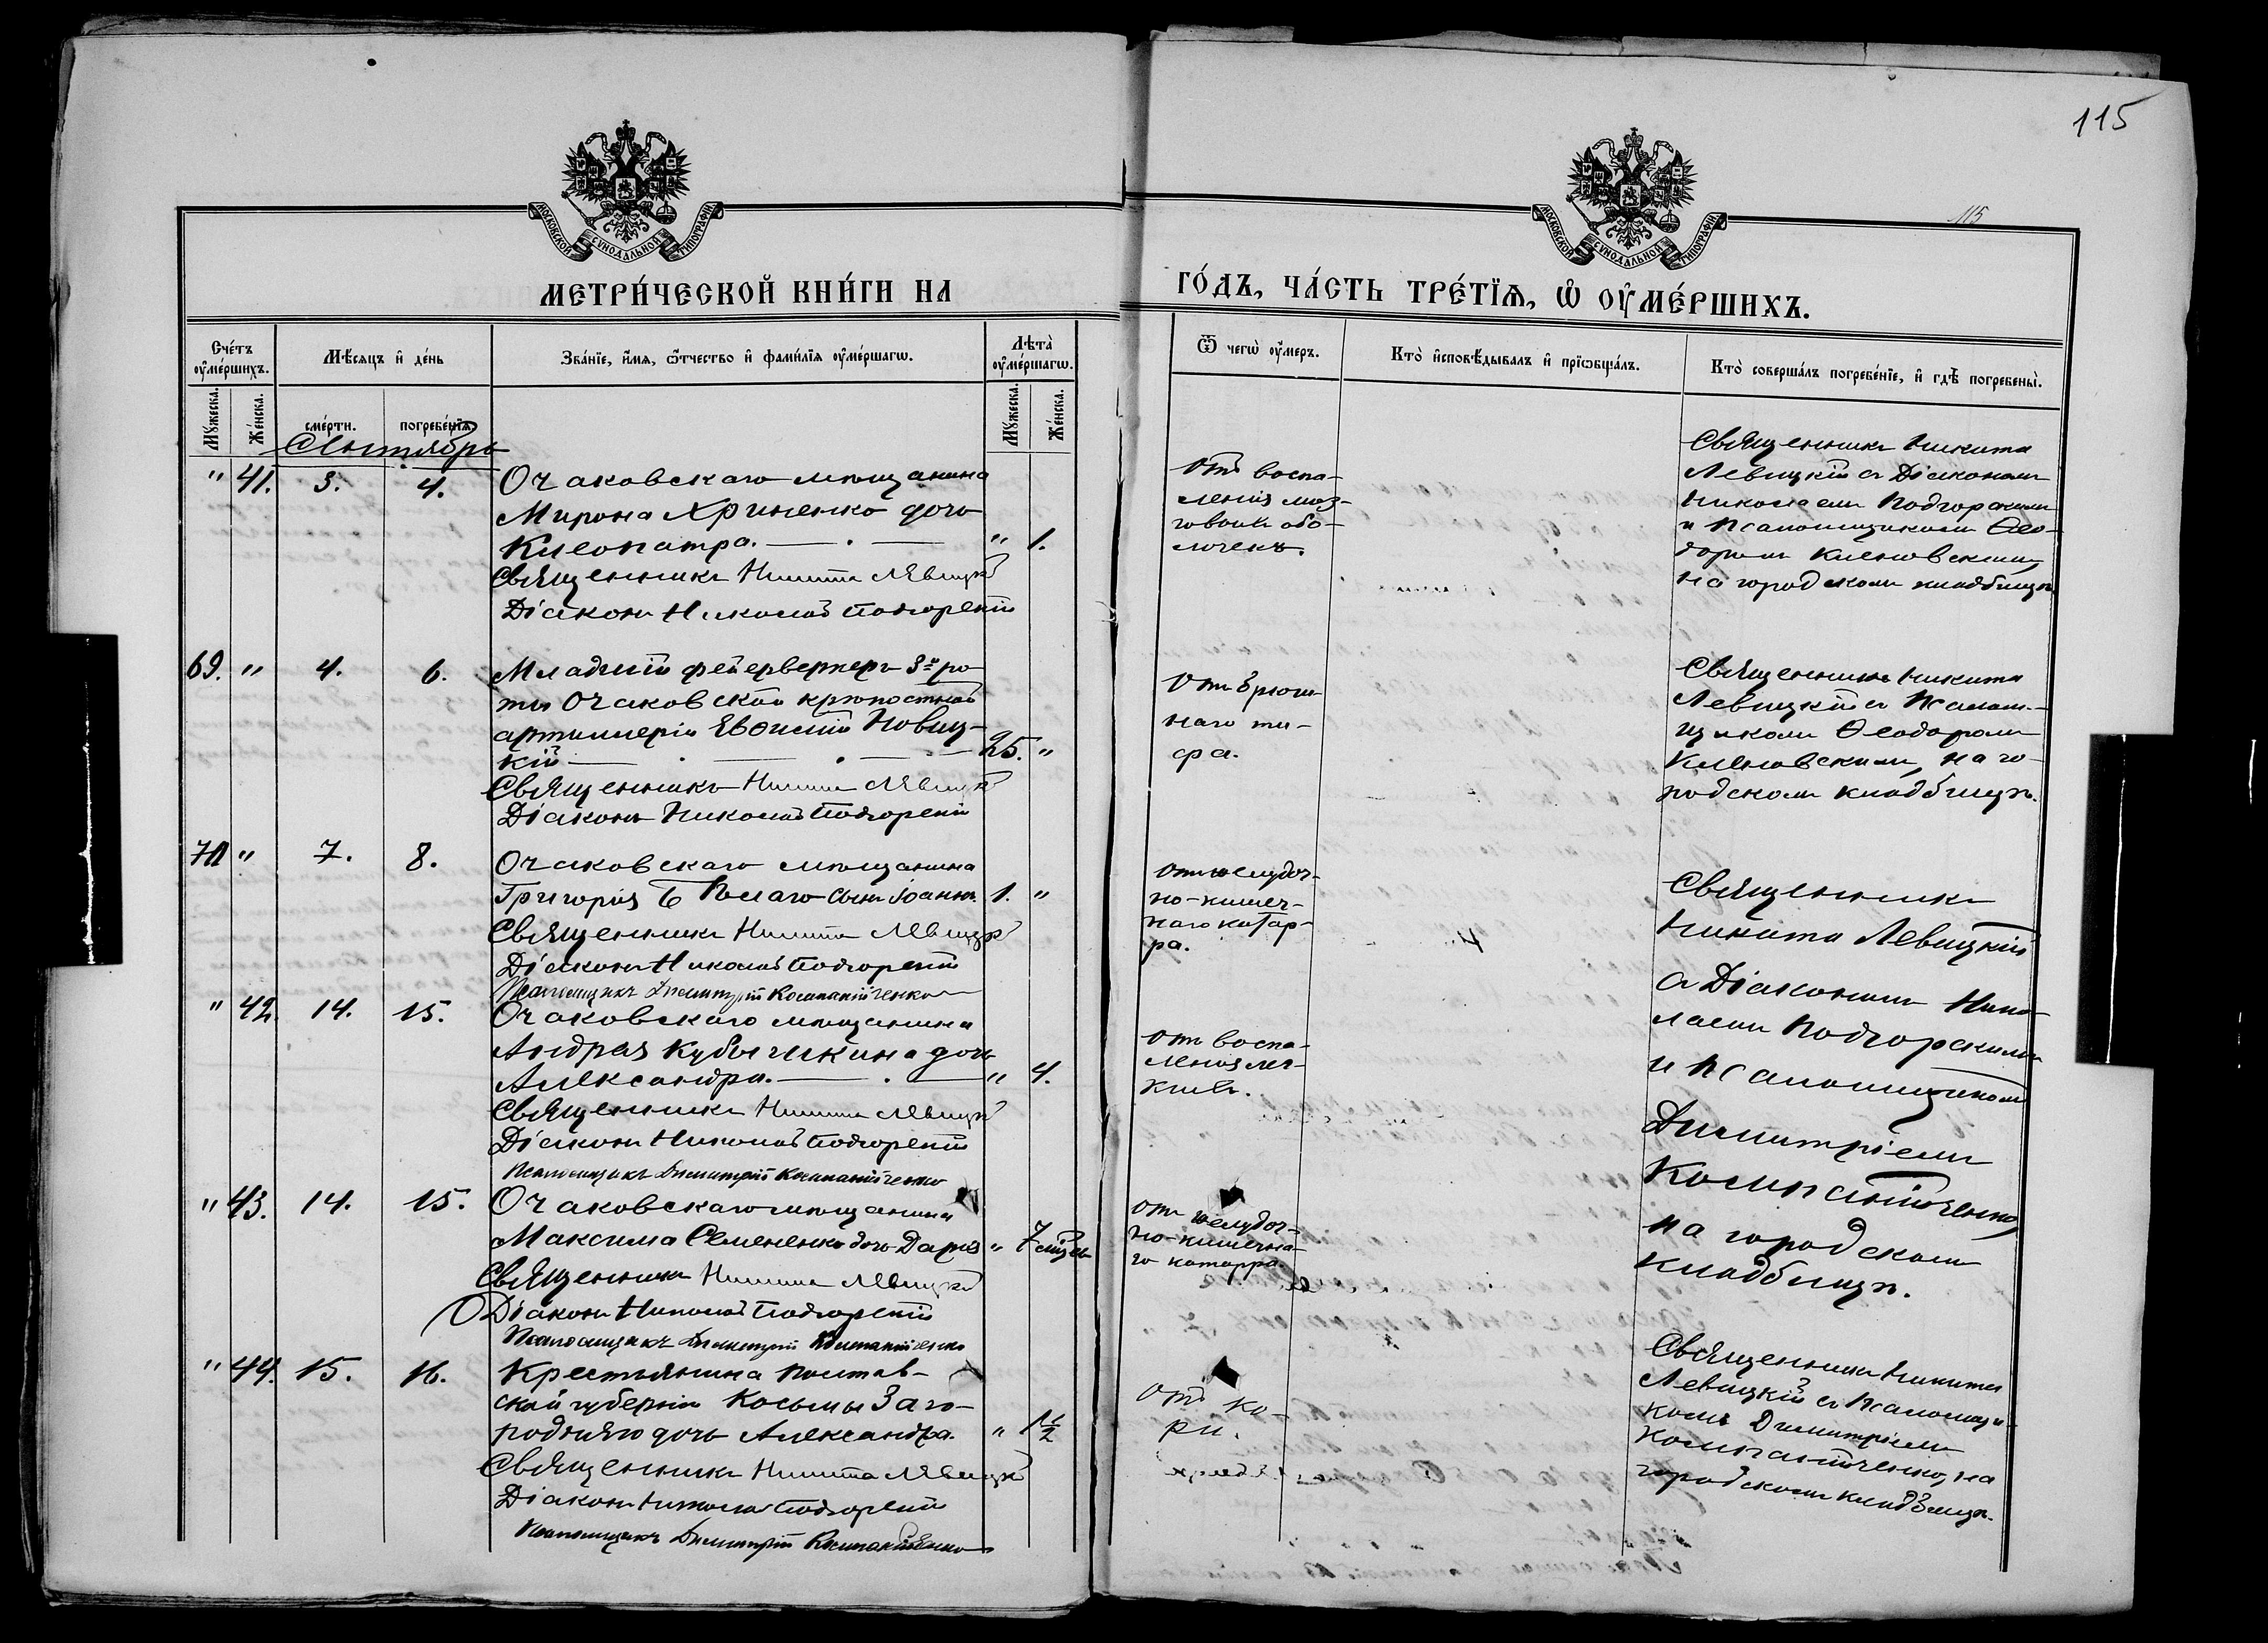 115
115
МОСКОВСКОЙ СѴНОДАЛЬНОЙ ТИПОГРАФІИ
МОСКОВСКОЙ СѴНОДАЛЬНОЙ ТИПОГРАФІИ
МЕТРИ́ЧЕСКОЙ КНИ́ГИ НА
ГО́ДЪ, ЧА́СТЬ ТРЕ́ТЇѦ, Ѡ҆ ОУ҆МЕ́РШИХЪ.
Сче́тъ оу҆ме́ршихъ.
Мѣ́сяцъ и҆ де́нь
Зва́нїе, и҆́мѧ, ѻ҆́тчество и҆ фами́лїѧ оу҆ме́ршагѡ.
Лѣта̀ оу҆ме́ршагѡ.
Ѿ чегѡ̀ оу҆́меръ.
Кто̀ и҆сповѣ́дывалъ и҆ прїѡбща́лъ.
Кто̀ соверша́лъ погребе́нїе, и҆ гдѣ̀ погребены̀.
Мꙋ́жеска.
Же́нска.
сме́рти.
погребе́нїѧ.
Мꙋ́жеска.
Же́нска.
Сентябрь
" 41. 3. 4. Очаковскаго мѣщанина
Мирона Хриненко дочь
Клеопатра. " 1.
Священникъ Никита Левицкій
Діаконъ Николай Подгорскій
Отъ воспа-
ленія моз-
говыхъ обо-
лочекъ.
Священникъ Никита
Левицкій съ Діакономъ
Николаемъ Подгорскимъ
и Псаломщикомъ Ѳео-
доромъ Кленовскимъ,
на городскомъ кладбищѣ
69. " 4. 6. Младшій фейерверкеръ 3й ро-
ты Очаковской крѣпостной
артиллеріи Евѳимій Новиц-
кій 25. "
Священникъ Никита Левицкій
Діаконъ Николай Подгорскій
Отъ брюш-
наго ти-
фа.
Священникъ Никита
Левицкій съ Псалом-
щикомъ Ѳеодоромъ
Кленовскимъ, на го-
родскомъ кладбищѣ.
70 " 7. 8. Очаковскаго мѣщанина
Григорія Бѣлаго сынъ Іоаннъ 1. "
Священникъ Никита Левицкій
Діаконъ Николай Подгорскій
Псаломщикъ Димитрій Компанійченко
отъ желудоч-
но-кишеч-
наго катар-
ра.
Священникъ
Никита Левицкій
съ Діакономъ Нико-
лаемъ Подгорскимъ
и Псаломщикомъ
Димитріемъ
Компанійченко,
на городскомъ
кладбищѣ.
" 42. 14. 15. Очаковскаго мѣщанина
Андрея Кубышкина дочь
Александра. " 4.
Священникъ Никита Левицкій
Діаконъ Николай Подгорскій
Псаломщикъ Димитрій Компанійченко
отъ воспа-
ленія лег-
кихъ.
" 43. 14. 15. Очаковскаго мѣщанина
Максима Семененко дочь Дарія " 7 мѣсяц.
Священникъ Никита Левицкій
Діаконъ Николай Подгорскій
Псаломщикъ Димитрій Компанійченко
отъ желудоч-
но-кишечна-
го катарра.
" 44. 15. 16. Крестьянина Полтав-
ской губерніи Косьмы Заго-
родняго дочь Александра. " 1½
Священникъ Никита Левицкій
Діаконъ Николай Подгорскій
Псаломщикъ Димитрій Компанійченко
Отъ ко-
ри.
Священникъ Никита
Левицкій съ Псаломщи-
комъ Димитріемъ
Компанійченко, на
городскомъ кладбищѣ.